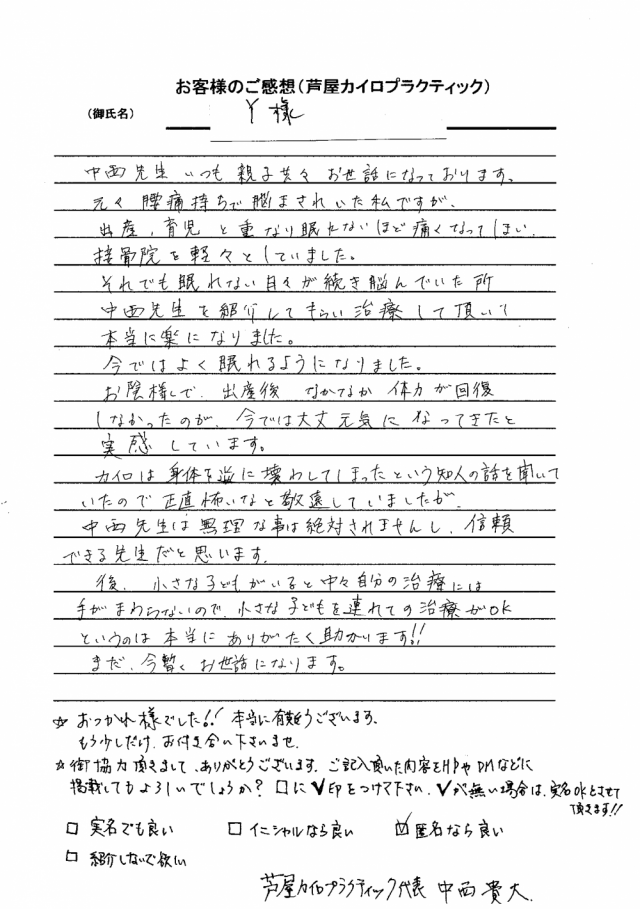 お客様のご感想(芦屋カイロプラクティック)
(御氏名) Y 様
中西先生 いつも 親子共々 お世話になっております。
元々 腰痛持ちで悩まされいた私ですが、
出産、育児 と 重なり眠れないほど痛くなってしまい、
接骨院を軽々としていました。
それでも眠れない日々が続き悩んでいた所
中西先生を紹介してもらい治療して頂いて
本当に楽になりました。
今ではよく眠れるようになりました。
お陰様で、出産後 なかなか 体力が回復
しなかったのが、今では大丈元気に なってきたと
実感しています。
カイロは身体を逆に壊わしてしまったという知人の話を聞いて
いたので正直怖いなと敬遠していましたが、
中西先生は無理な事は絶対されませんし、信頼
できる先生だと思います。
後、小さな子どもがいると中々自分の治療には
手がまわらないので、小さな子どもを連れての治療がOK
というのは本当にありがたく助かります!!
まだ、今暫くお世話になります。
☆ おつかれ様でした!! 本当に有難うございます。
もう少しだけ、お付き合い下さいませ。
☆ 御協力頂きまして、ありがとうございます。ご記入頂いた内容をHPやDMなどに
掲載してもよろしいでしょうか? □に✓印をつけて下さい。✓が無い場合は、実名OKとさせて
頂きます!!
□ 実名でも良い □ イニシャルなら良い ☑ 匿名なら良い
□ 紹介しないで欲しい
芦屋カイロプラクティック代表 中西 貴大